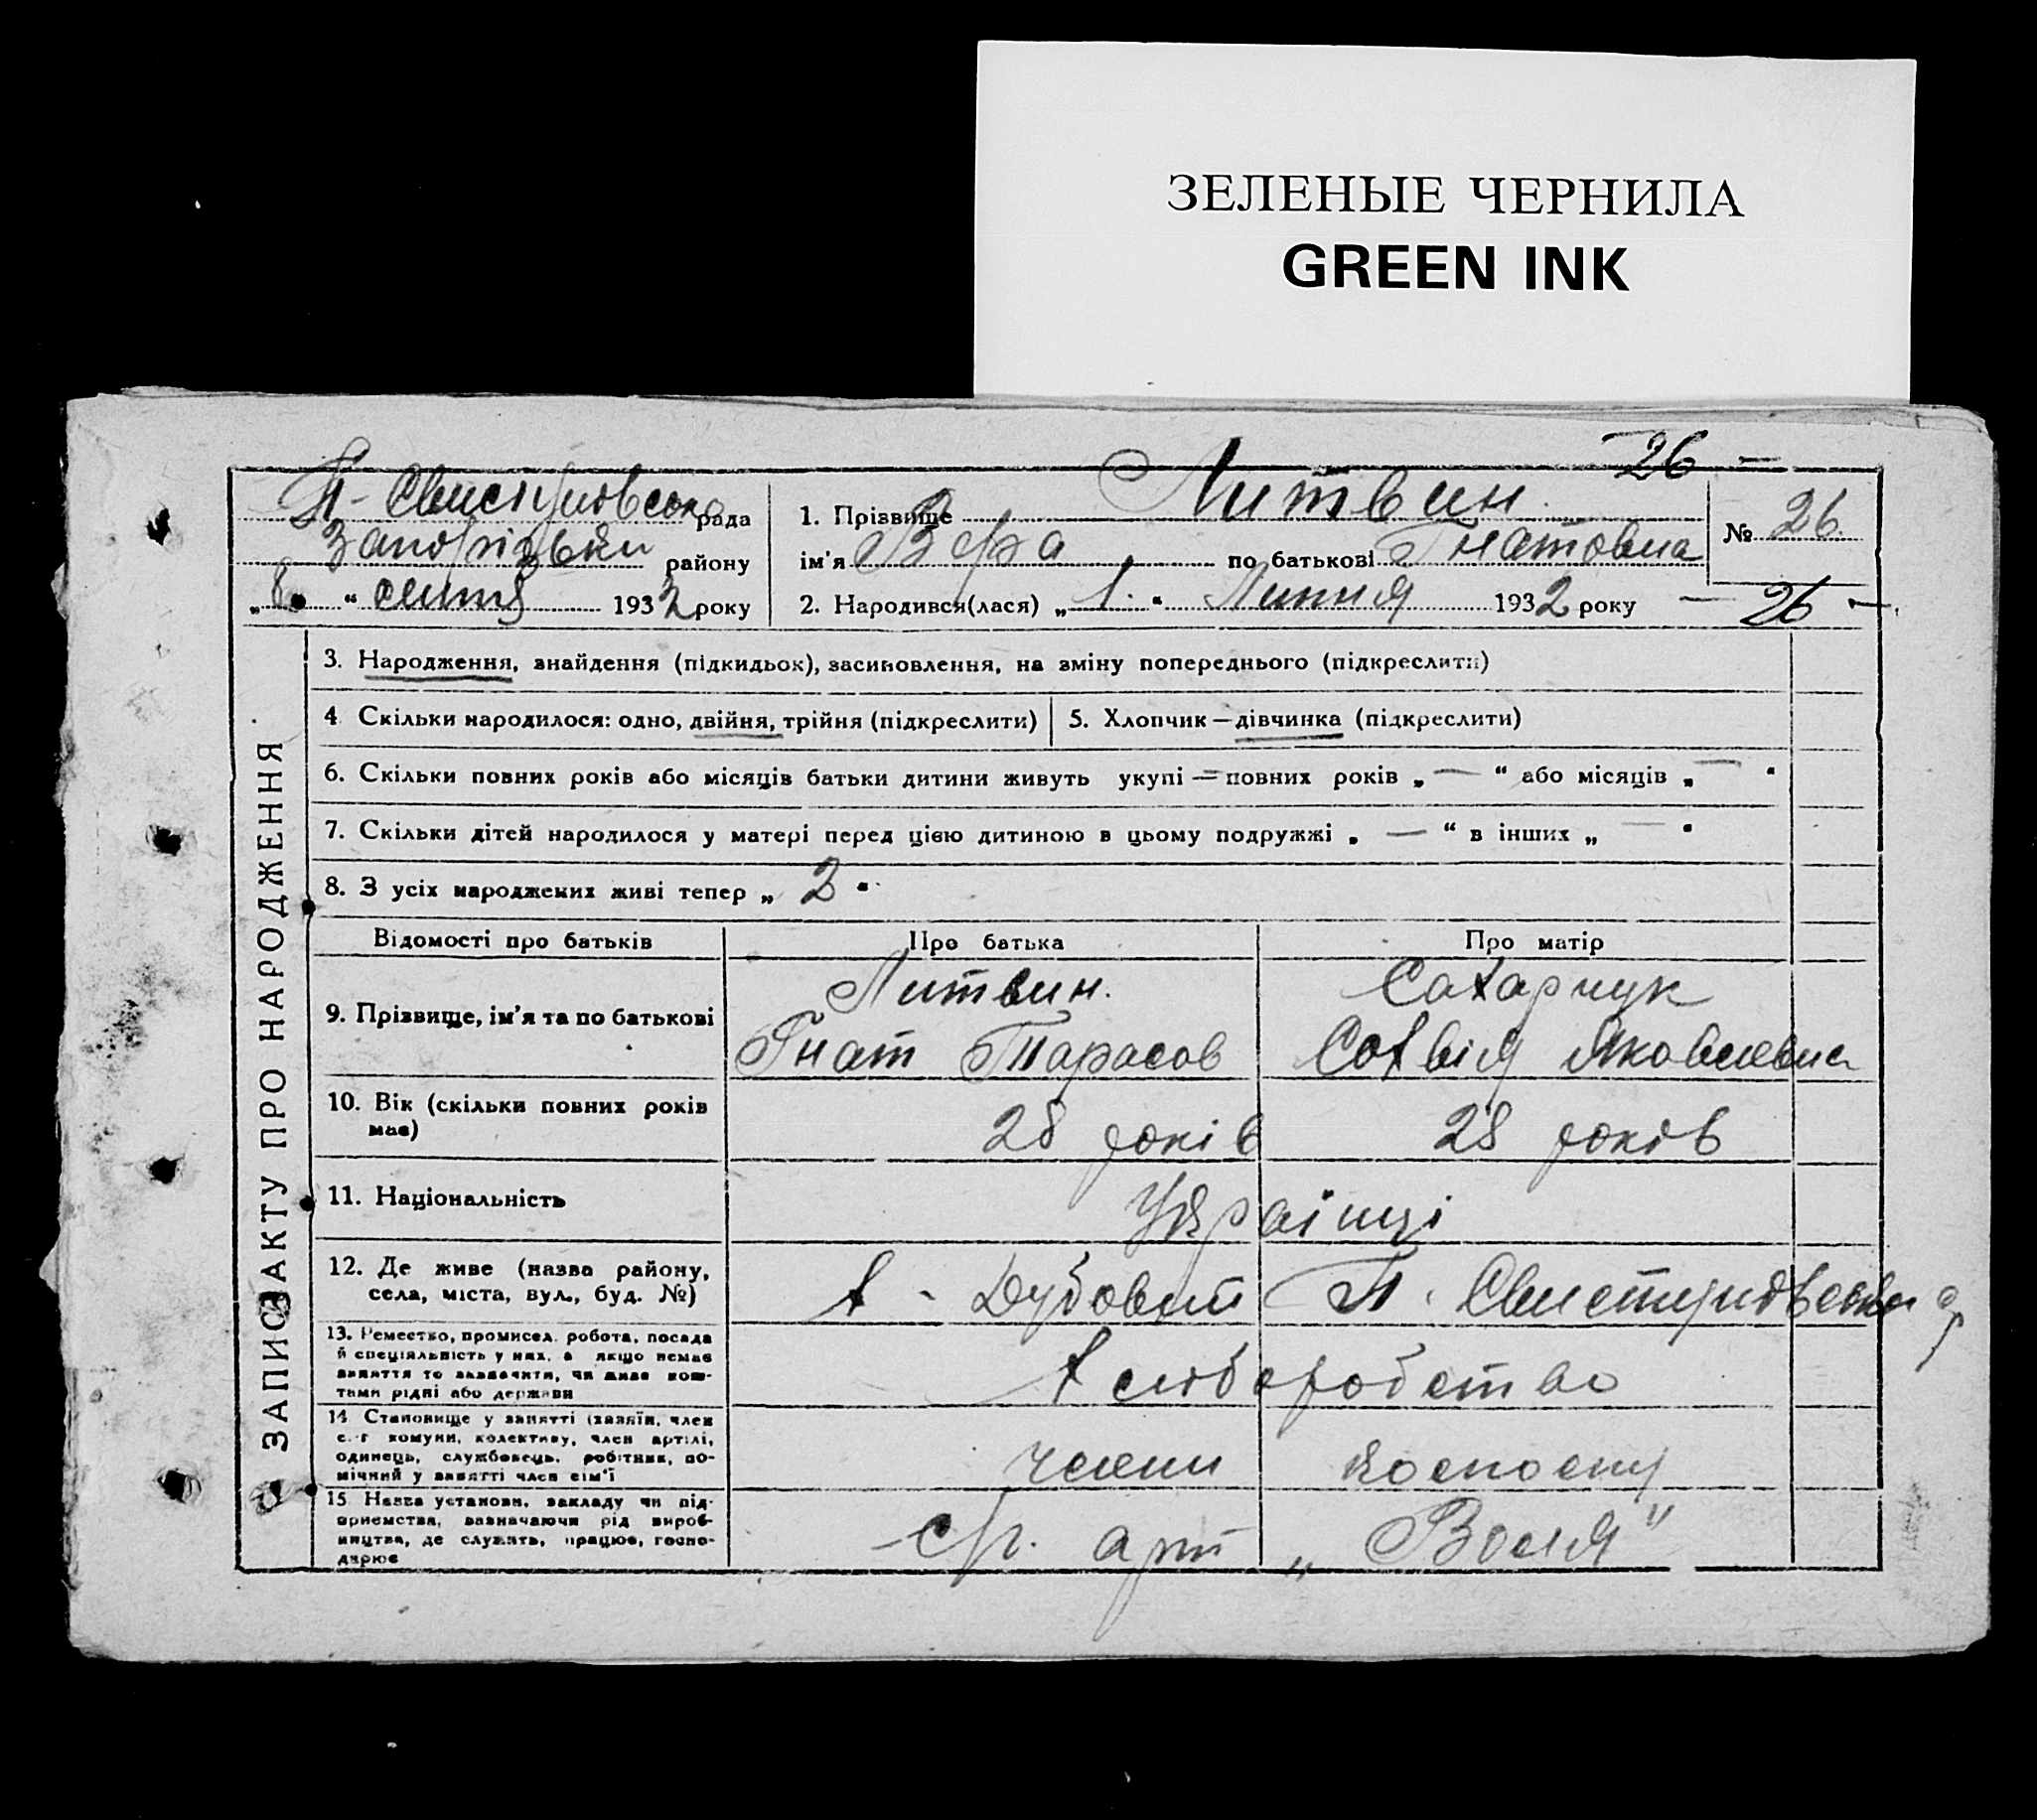 ЗЕЛЕНЫЕ ЧЕРНИЛА
GREEN INK
26 —
П- Свистуновська рада
Запорізьки району
„8“ 1932 року
1. Прізвище Литвин
ім'я Вера по батькові Гнатовна
2. Народився(лася) „1.“ Липня 1932 року
№ 26.
— 26 —
ЗАПИС АКТУ ПРО НАРОДЖЕННЯ
3. Народження, знайдення (підкидьок), засиновлення, на зміну попереднього (підкреслити)
4 Скільки народилося: одно, двійня, трійня (підкреслити)
5. Хлопчик — дівчинка (підкреслити)
6. Скільки повних років або місяців батьки дитини живуть укупі — повних років „ — “ або місяців „ — “
7. Скільки дітей народилося у матері перед цією дитиною в цьому подружжі „ — “ в інших „ — “
8. З усіх народжених живі тепер „ 2 “
Відомості про батьків Про батька Про матір
9. Прізвище, ім'я та по батькові
Литвин. Сахарчук
Гнат Тарасов Яковлевна
10. Вік (скільки повних років має)
28 років 28 років
11. Національність
Українці
12. Де живе (назва району,
села, міста, вул., буд. №)
х - Дубовий П. Свистуновськa
13. Ремество, промисел, робота, посада
й спеціяльність у них, а якщо немає
заняття то зазначити, чи живе кош-
тами рідні або держави
Хліборобство
14. Становище у занятті (хазяїн, член
с.-г комуни, колективу, член артілі,
одинець, службовець, робітник, по-
мічний у занятті член сім'ї
члени колгоспу
15 Назва установи, закладу чи під-
приємства, зазначаючи рід вироб-
ництва, де служить, працює, госпо-
дарює
арт „Воля"